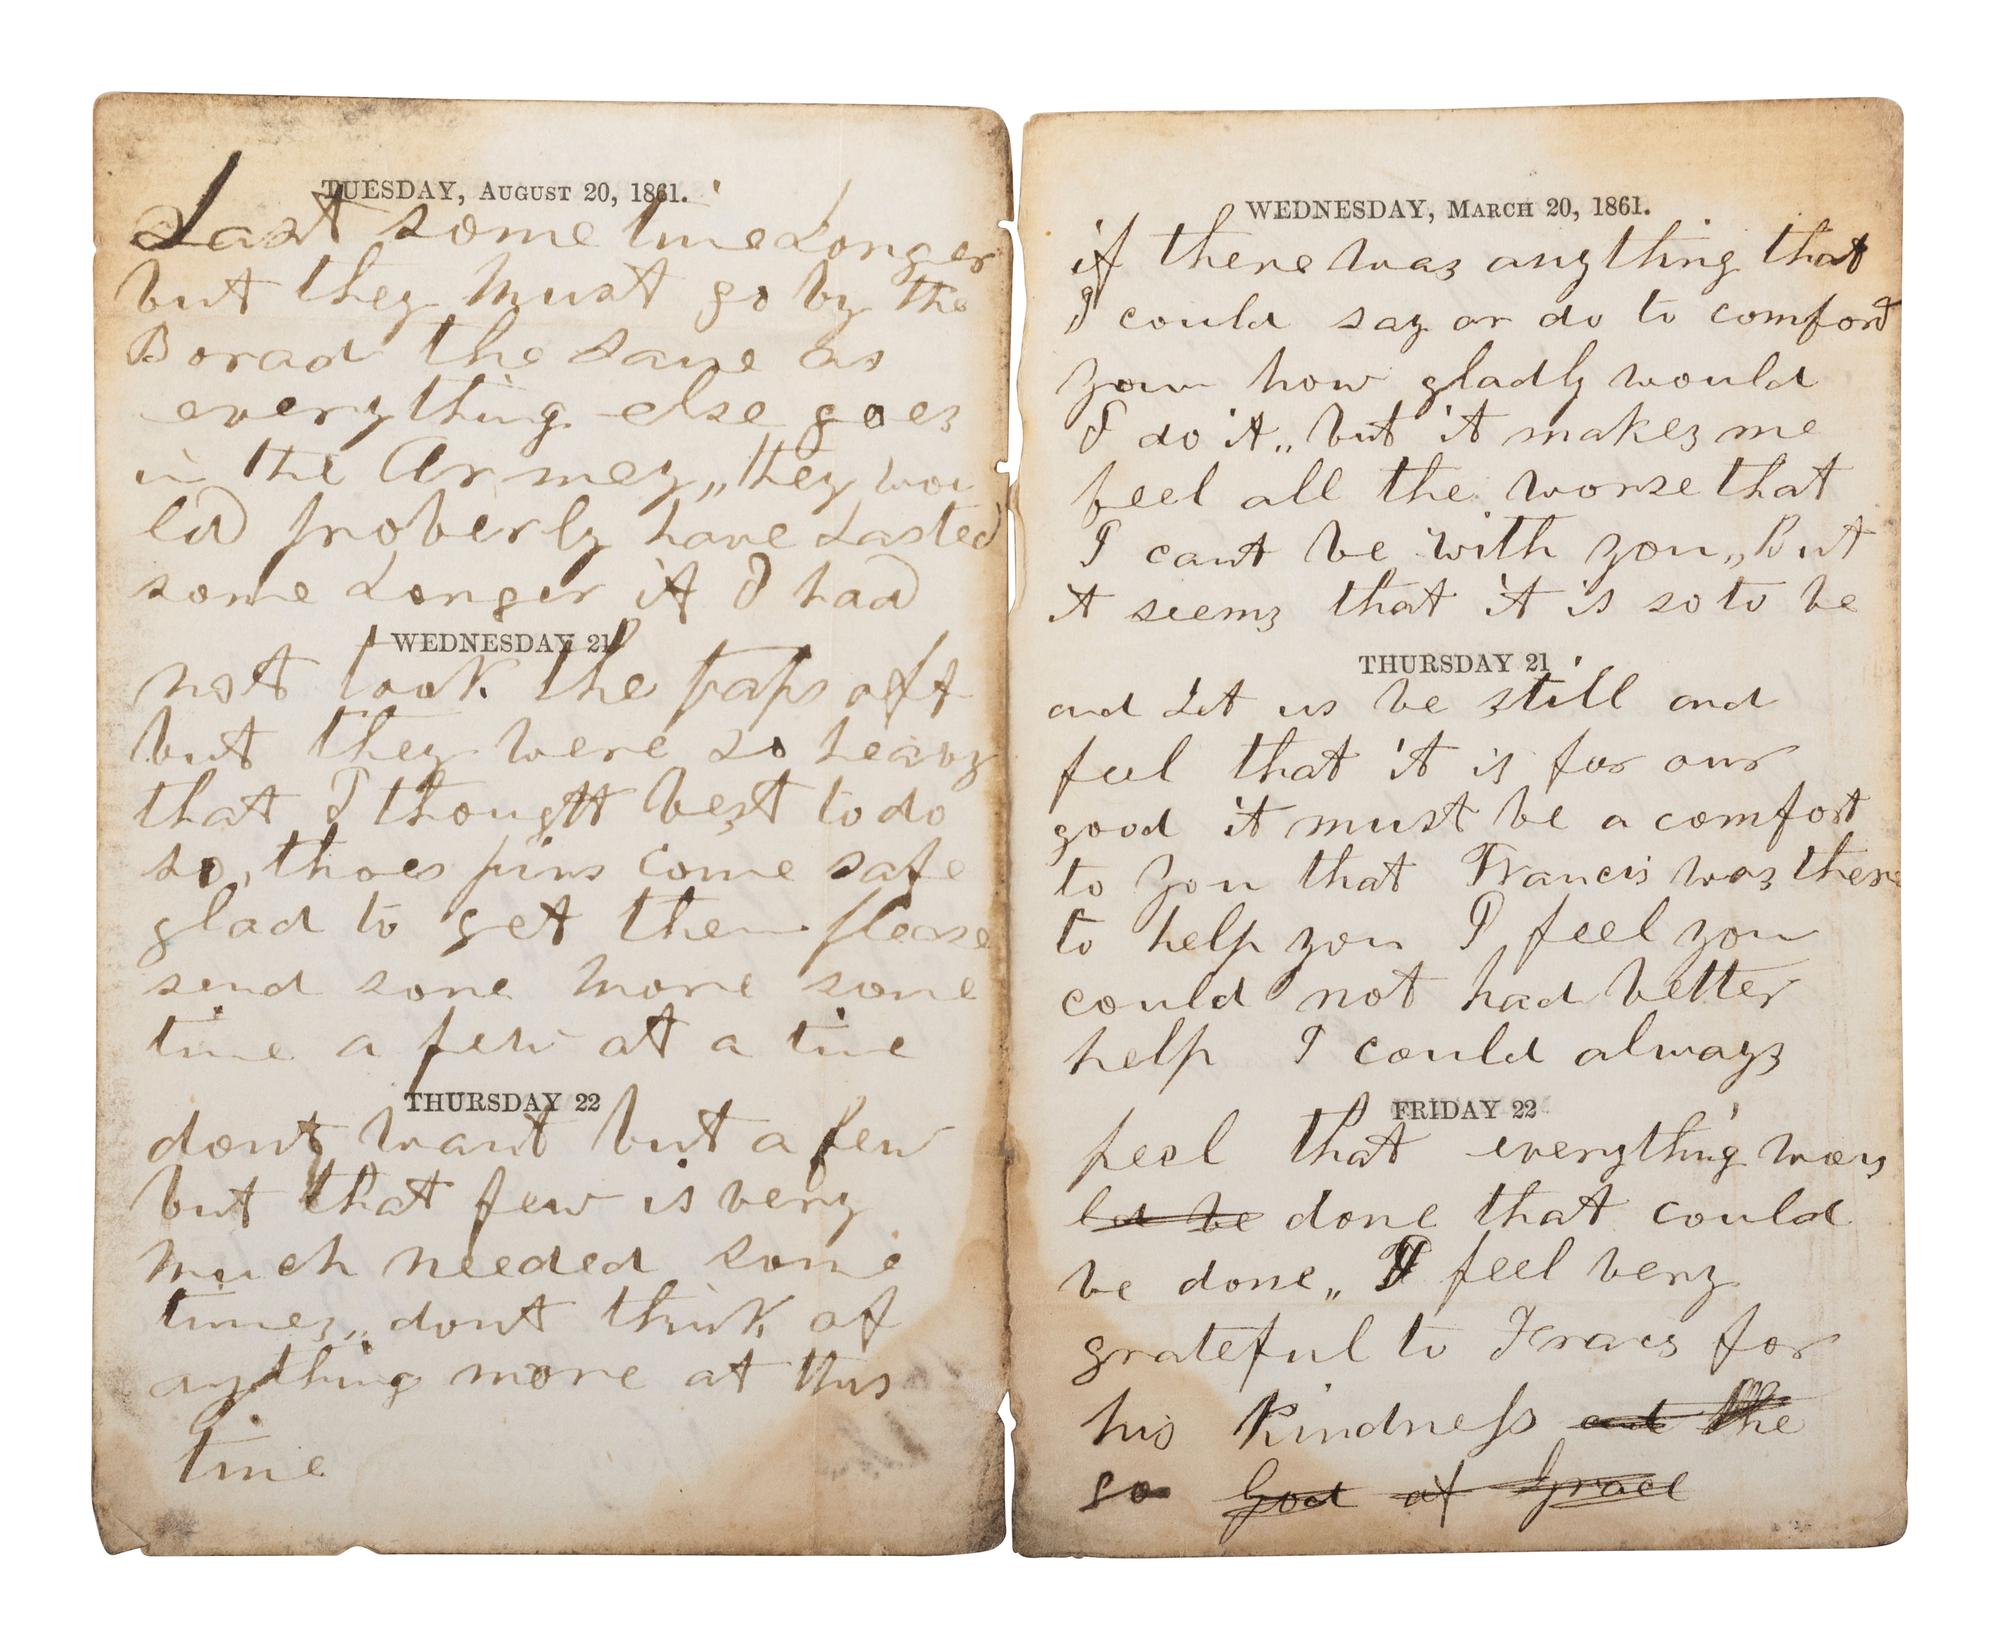 TUESDAY, AUGUST 20, 1861.
Last some time Longer
but they must go by the
Borad the same as
everything else goes
in the Armey,, they wou
ld proberly have Lasted
some Longer if I had
WEDNESDAY 21
not took the taps off
but they were so heavy
that I thought best to do
so, thoes pins come safe
glad to get them please
send some more some
time a few at a time
THURSDAY 22
dont want but a few
but that few is very
much needed some
times,, dont think of
anything more at this
time
WEDNESDAY, MARCH 20, 1861.
if there was anything that
I could say or do to comfort
you how gladly would
I do it,, but it makes me
feel all the worse that
I cant be with you,, But
it seems that it is so to be
THURSDAY 21
and Let us be still and
feel that it is for our
good it must be a comfort
to you that Francis was there
to help you I feel you
could not had better
help I could always
FRIDAY 22
feel that everything was
ld be done that could
be done,, I feel very
grateful to for
his kindness and the
so God of Israel